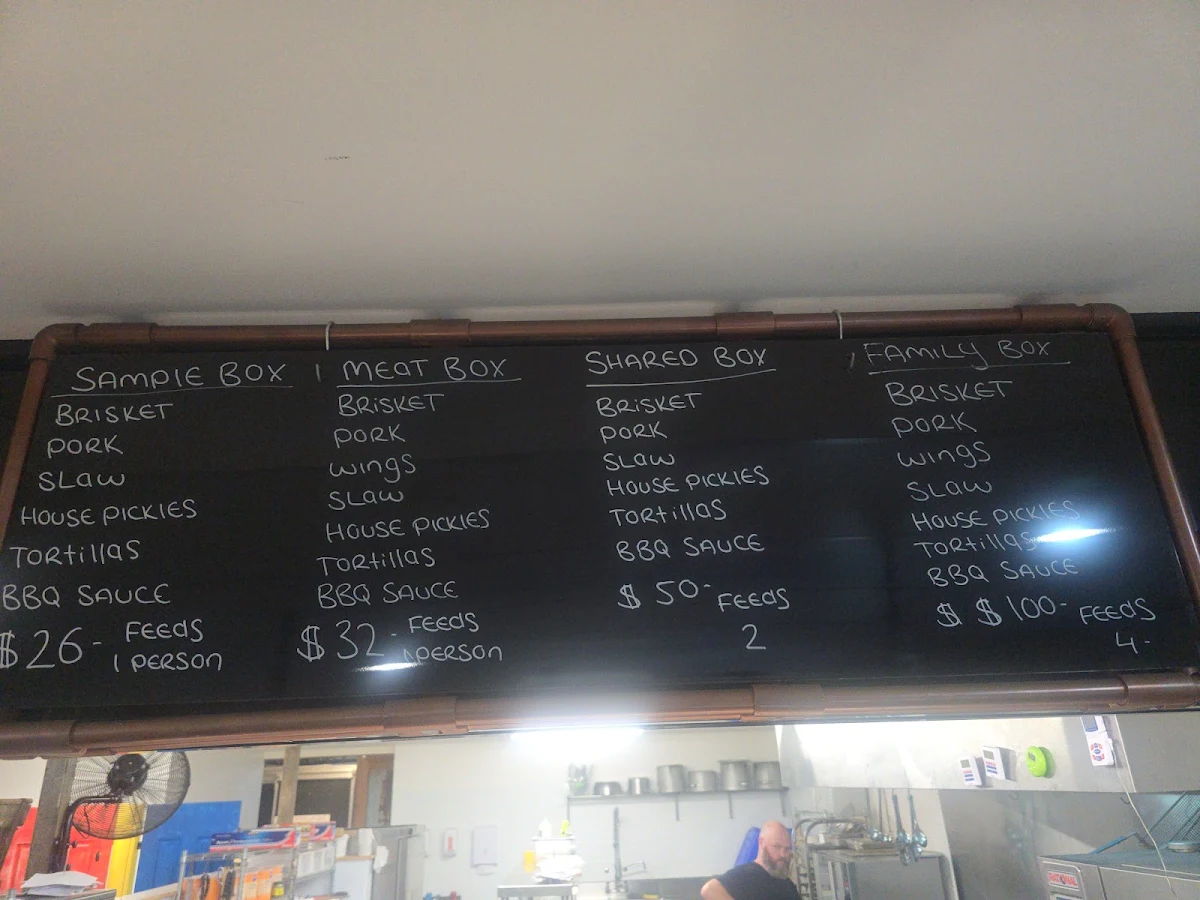 SAMPLE BOX
BRISKET
PORK
SLAW
HOUSE PICKLES
TORTILLAS
BBQ SAUCE
$26- FEEDS
1 PERSON
MEAT BOX
BRISKET
PORK
WINGS
SLAW
HOUSE PICKLES
TORTILLAS
BBQ SAUCE
$32- FEEDS
1 PERSON
SHARED BOX
BRISKET
PORK
SLAW
HOUSE PICKLES
TORTILLAS
BBQ SAUCE
$50- FEEDS
2
FAMILY BOX
BRISKET
PORK
WINGS
SLAW
HOUSE PICKLES
TORTILLAS
BBQ SAUCE
$ $100- FEEDS
4-
RATIONAL